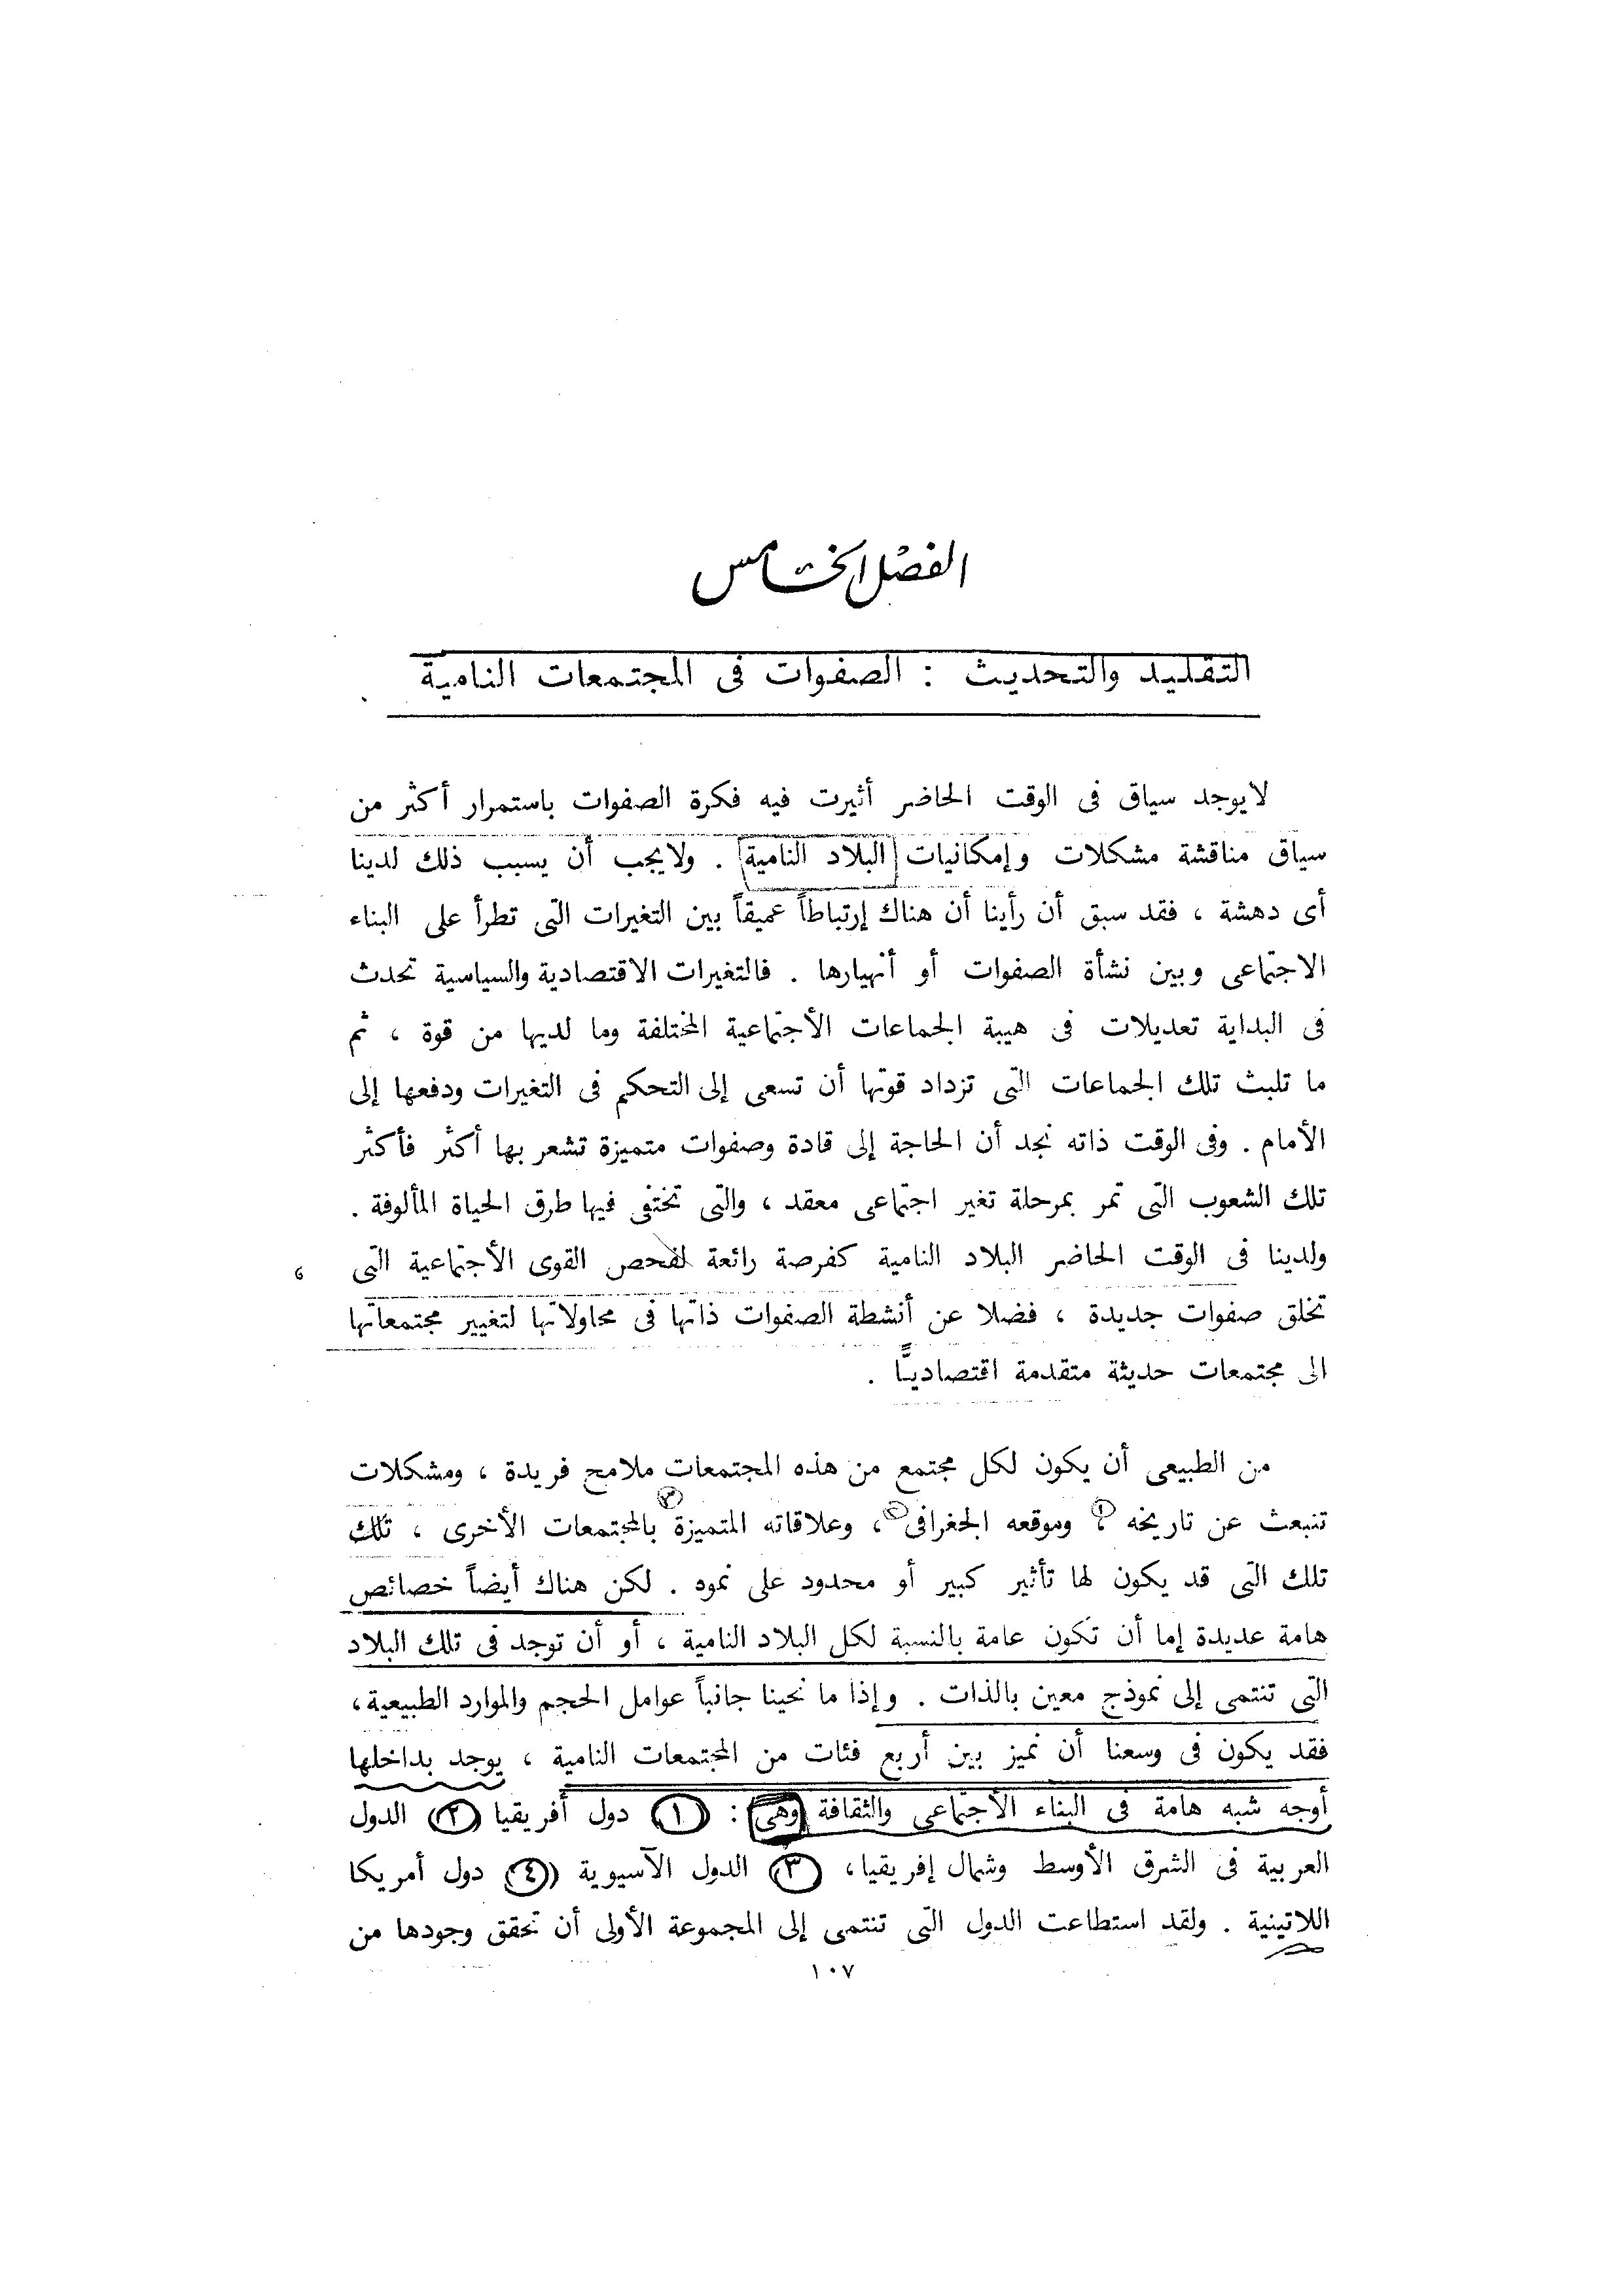 الفصل الخامس
التقليد والتحديث : الصفوات فى المجتمعات النامية
لايوجد سياق فى الوقت الحاضر أثيرت فيه فكرة الصفوات باستمرار أكثر من
سياق مناقشة مشكلات وإمكانيات البلاد النامية . ولايجب أن يسبب ذلك لدينا
أى دهشة ، فقد سبق أن رأينا أن هناك إرتباطاً عميقاً بين التغيرات التى تطرأ على البناء
الاجتماعى وبين نشأة الصفوات أو أنهيارها . فالتغيرات الاقتصادية والسياسية تحدث
فى البداية تعديلات فى هيبة الجماعات الأجتماعية المختلفة وما لديها من قوة ، ثم
ما تلبث تلك الجماعات التى تزداد قوتها أن تسعى إلى التحكم فى التغيرات ودفعها إلى
الأمام . وفى الوقت ذاته نجد أن الحاجة إلى قادة وصفوات متميزة تشعر بها أكثر فأكثر
تلك الشعوب التى تمر بمرحلة تغير اجتماعى معقد ، والتى تختفى فيها طرق الحياة المألوفة .
ولدينا فى الوقت الحاضر البلاد النامية كفرصة رائعة لفحص القوى الأجتماعية التى
تخلق صفوات جديدة ، فضلا عن أنشطة الصفوات ذاتها فى محاولاتها لتغيير مجتمعاتها
الى مجتمعات حديثة متقدمة اقتصاديًّا .
من الطبيعى أن يكون لكل مجتمع من هذه المجتمعات ملامح فريدة ، ومشكلات
تنبعث عن تاريخه ، وموقعه الجغرافى ، وعلاقاته المتميزة بالمجتمعات الأخرى ، تلك
تلك التى قد يكون لها تأثير كبير أو محدود على نموه . لكن هناك أيضاً خصائص
هامة عديدة إما أن تكون عامة بالنسبة لكل البلاد النامية ، أو أن توجد فى تلك البلاد
التى تنتمى إلى نموذج معين بالذات . وإذا ما نحينا جانباً عوامل الحجم والموارد الطبيعية ،
فقد يكون فى وسعنا أن نميز بين أربع فئات من المجتمعات النامية ، يوجد بداخلها
أوجه شبه هامة فى البناء الأجتماعى والثقافة وهى : (١) دول أفريقيا (٢) الدول
العربية فى الشرق الأوسط وشمال إفريقيا ، (٣) الدول الآسيوية (٤) دول أمريكا
اللاتينية . ولقد استطاعت الدول التى تنتمى إلى المجموعة الأولى أن تحقق وجودها من
١٠٧